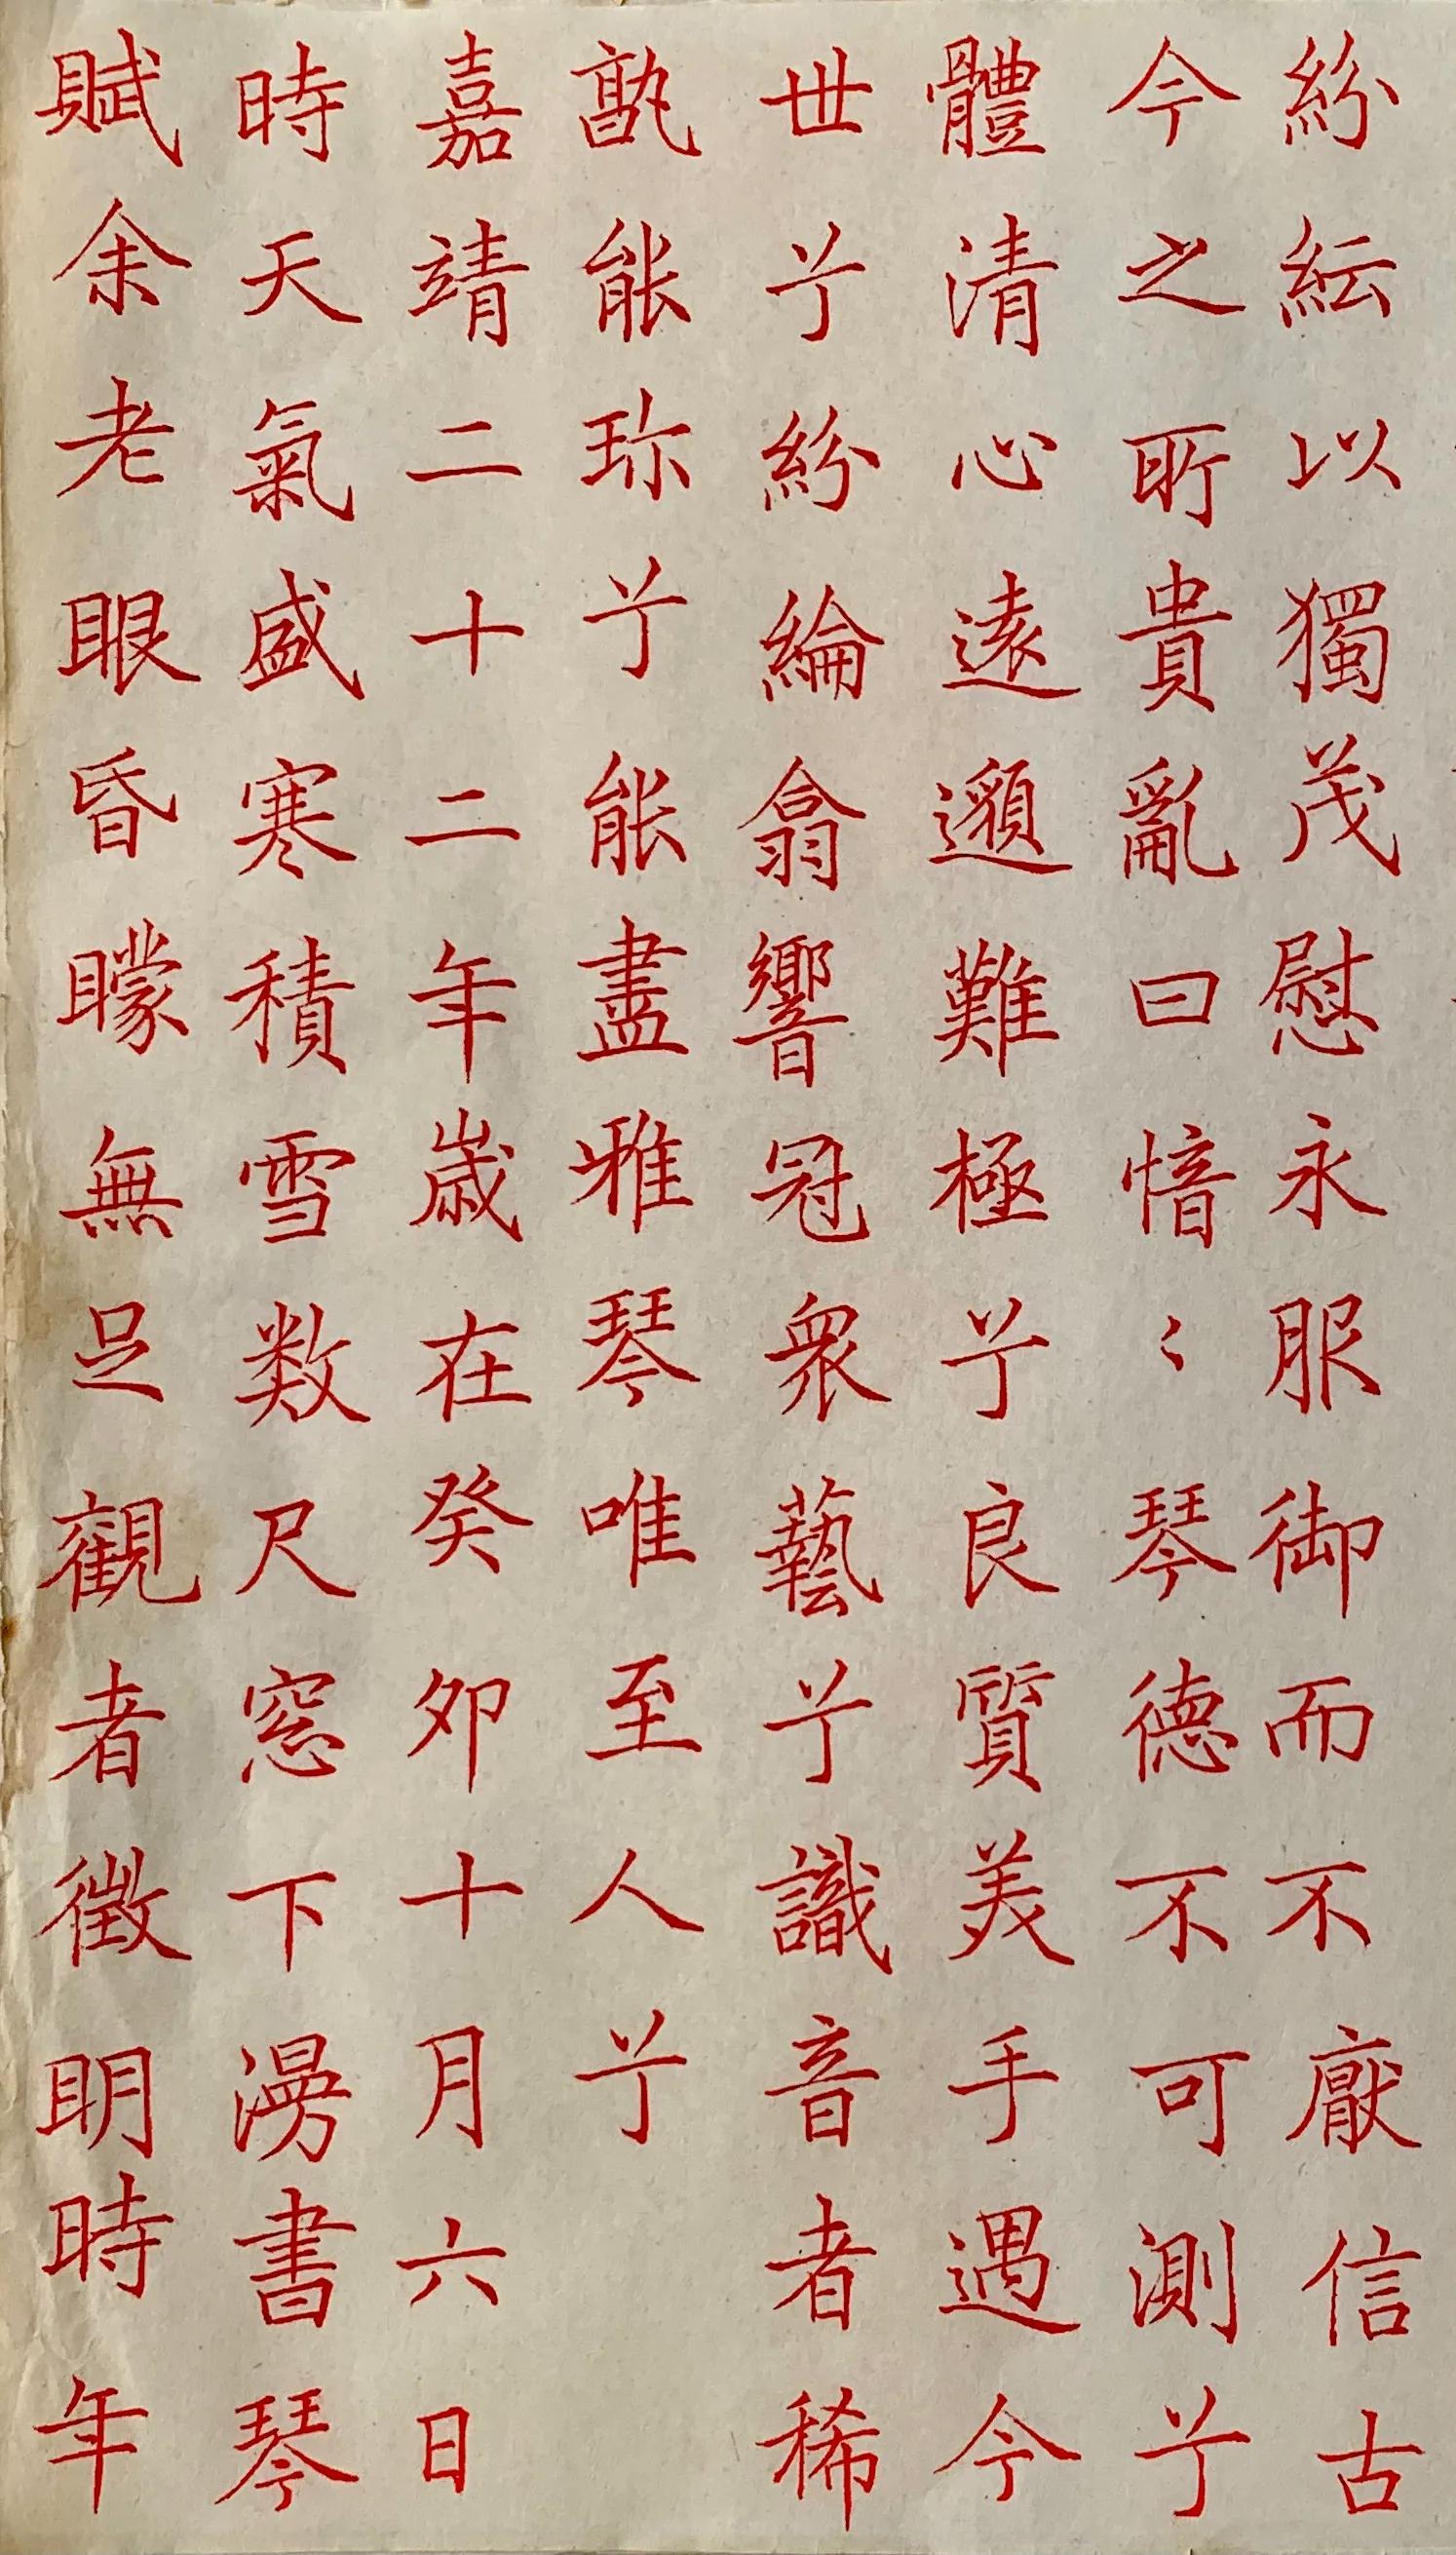 紛紜以獨茂慰永服御而不厭信古
今之所貴亂曰愔〻琴德不可測兮
體清心遠邈難極兮良質美手遇今
世兮紛綸翕響冠眾藝兮識音者稀
孰能珍兮能盡雅琴唯至人兮
嘉靖二十二年歲在癸卯十月六日
時天氣盛寒積雪数尺窓下漫書琴
賦余老眼昏矇無足觀者徵明時年